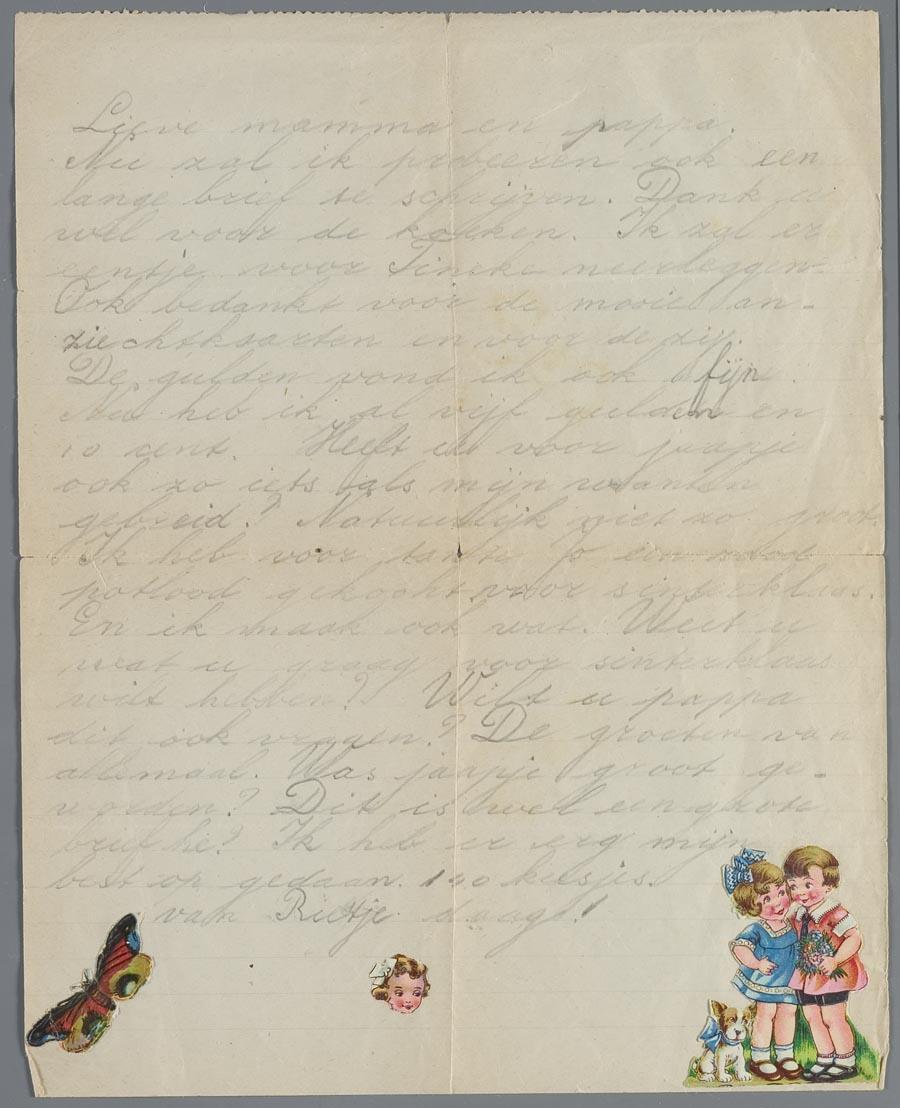 Lieve mamma en pappa.
Nu zal ik proberen ook een
lange brief te schrijven. Dank u
wel voor de koeken. Ik zal er
eentje voor Tineke neerleggen.
Ook bedankt voor de mooie an-
ziechtkaarten en voor de
De gulden vond ik ook fijn.
Nu heb ik al vijf gulden en
10 cent. Heeft u voor jaapje
ook zo iets als mijn wanten
gebreid? Natuurlijk niet zo groot.
Ik heb voor tante Jo een rood
potlood gekocht voor sinterklaas.
En ik maak ook wat. Weet u
wat u graag voor sinterklaas
wilt hebben? Wilt u pappa
dit ook vragen? De groeten van
allemaal. Was jaapje groot ge-
worden? Dit is wel een grote
brief hè? Ik heb er erg mijn
best op gedaan. 100 kusjes.
van Rietje daag!